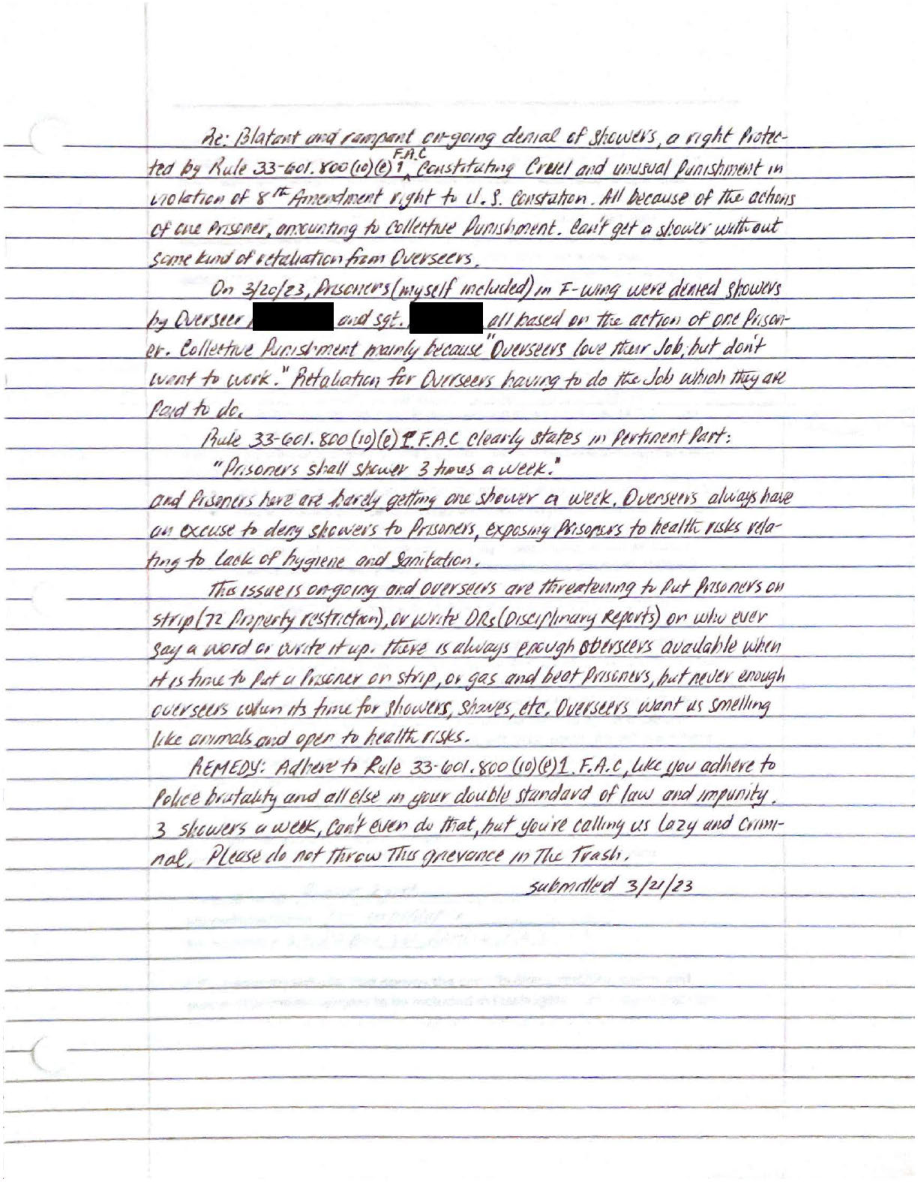 Re: Blatant and rampant on-going denial of showers, a right Protec-
ted by Rule 33-601.800(10)(e)1 F.A.C Constituting Cruel and unusual Punishment in
violation of 8th Amendment right to U.S. Constation. All because of the actions
of one Prisoner, amounting to Collective Punishment. Can't get a shower without
some kind of retaliation from Overseers.
On 3/20/23, Prisoners (myself included) in F-wing were denied showers
by Overseer and sgt. all based on the action of one Prison-
er. Collective Punishment mainly because "Overseers love their Job, but don't
want to work." Retaliation for Overseers having to do the Job which they are
Paid to do.
Rule 33-601.800(10)(e)1. F.A.C clearly states in Pertinent Part:
"Prisoners shall shower 3 times a week."
and Prisoners here are barely getting one shower a week. Overseers always have
an excuse to deny showers to Prisoners, exposing Prisoners to health risks rela-
ting to Lack of hygiene and Sanitation.
This issue is on-going and overseers are threatening to Put Prisoners on
strip (72 Property restriction), or write DRs (Disciplinary Reports) on who ever
say a word or write it up. there is always enough overseers available when
it is time to Put a Prisoner on strip, or gas and beat Prisoners, but never enough
overseers when its time for showers, shaves, etc. Overseers want us smelling
like animals and open to health risks.
REMEDY: Adhere to Rule 33-601.800(10)(e)1. F.A.C, Like you adhere to
Police brutality and all else in your double standard of law and impunity.
3 showers a week, Can't even do that, but you're calling us Lazy and Crimi-
nal. Please do not throw This grievance in The Trash.
submitted 3/21/23